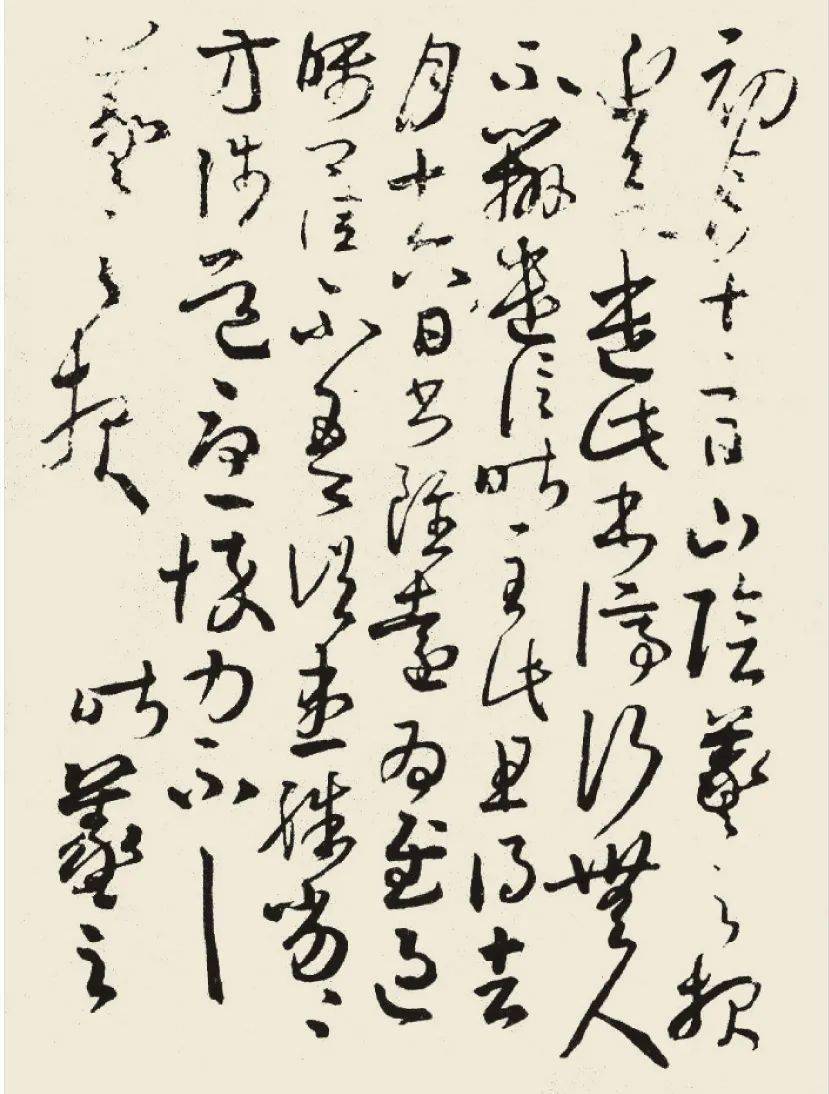 初月十二日山陰羲之報
近欲遣此書停行無人
不辦遣信昨至此且得去
月十六日書雖遠為慰過
囑卿佳不吾諸患殊劣〻
方涉道憂悴力不具
羲之報 昨羲之